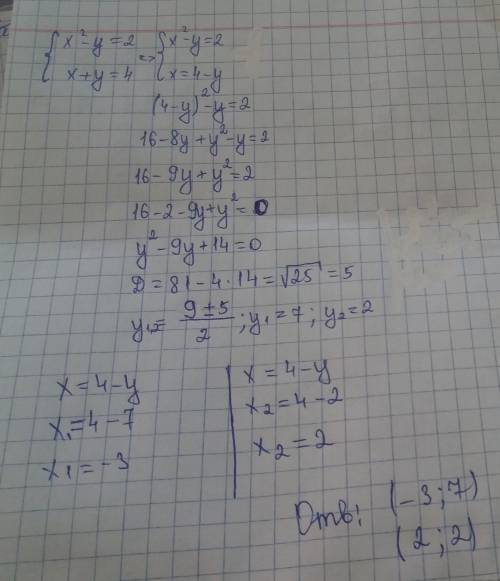 { x² - y = 2 => { x² - y = 2
{ x + y = 4 { x = 4 - y
(4 - y)² - y = 2
16 - 8y + y² - y = 2
16 - 9y + y² = 2
16 - 2 - 9y + y² = 0
y² - 9y + 14 = 0
D = 81 - 4 · 14 = √25 = 5
y₁,₂ = (9 ± 5)/2 ; y₁ = 7 ; y₂ = 2
x = 4 - y
x₁ = 4 - 7
x₁ = -3
x = 4 - y
x₂ = 4 - 2
x₂ = 2
Отв: (-3 ; 7)
(2 ; 2)